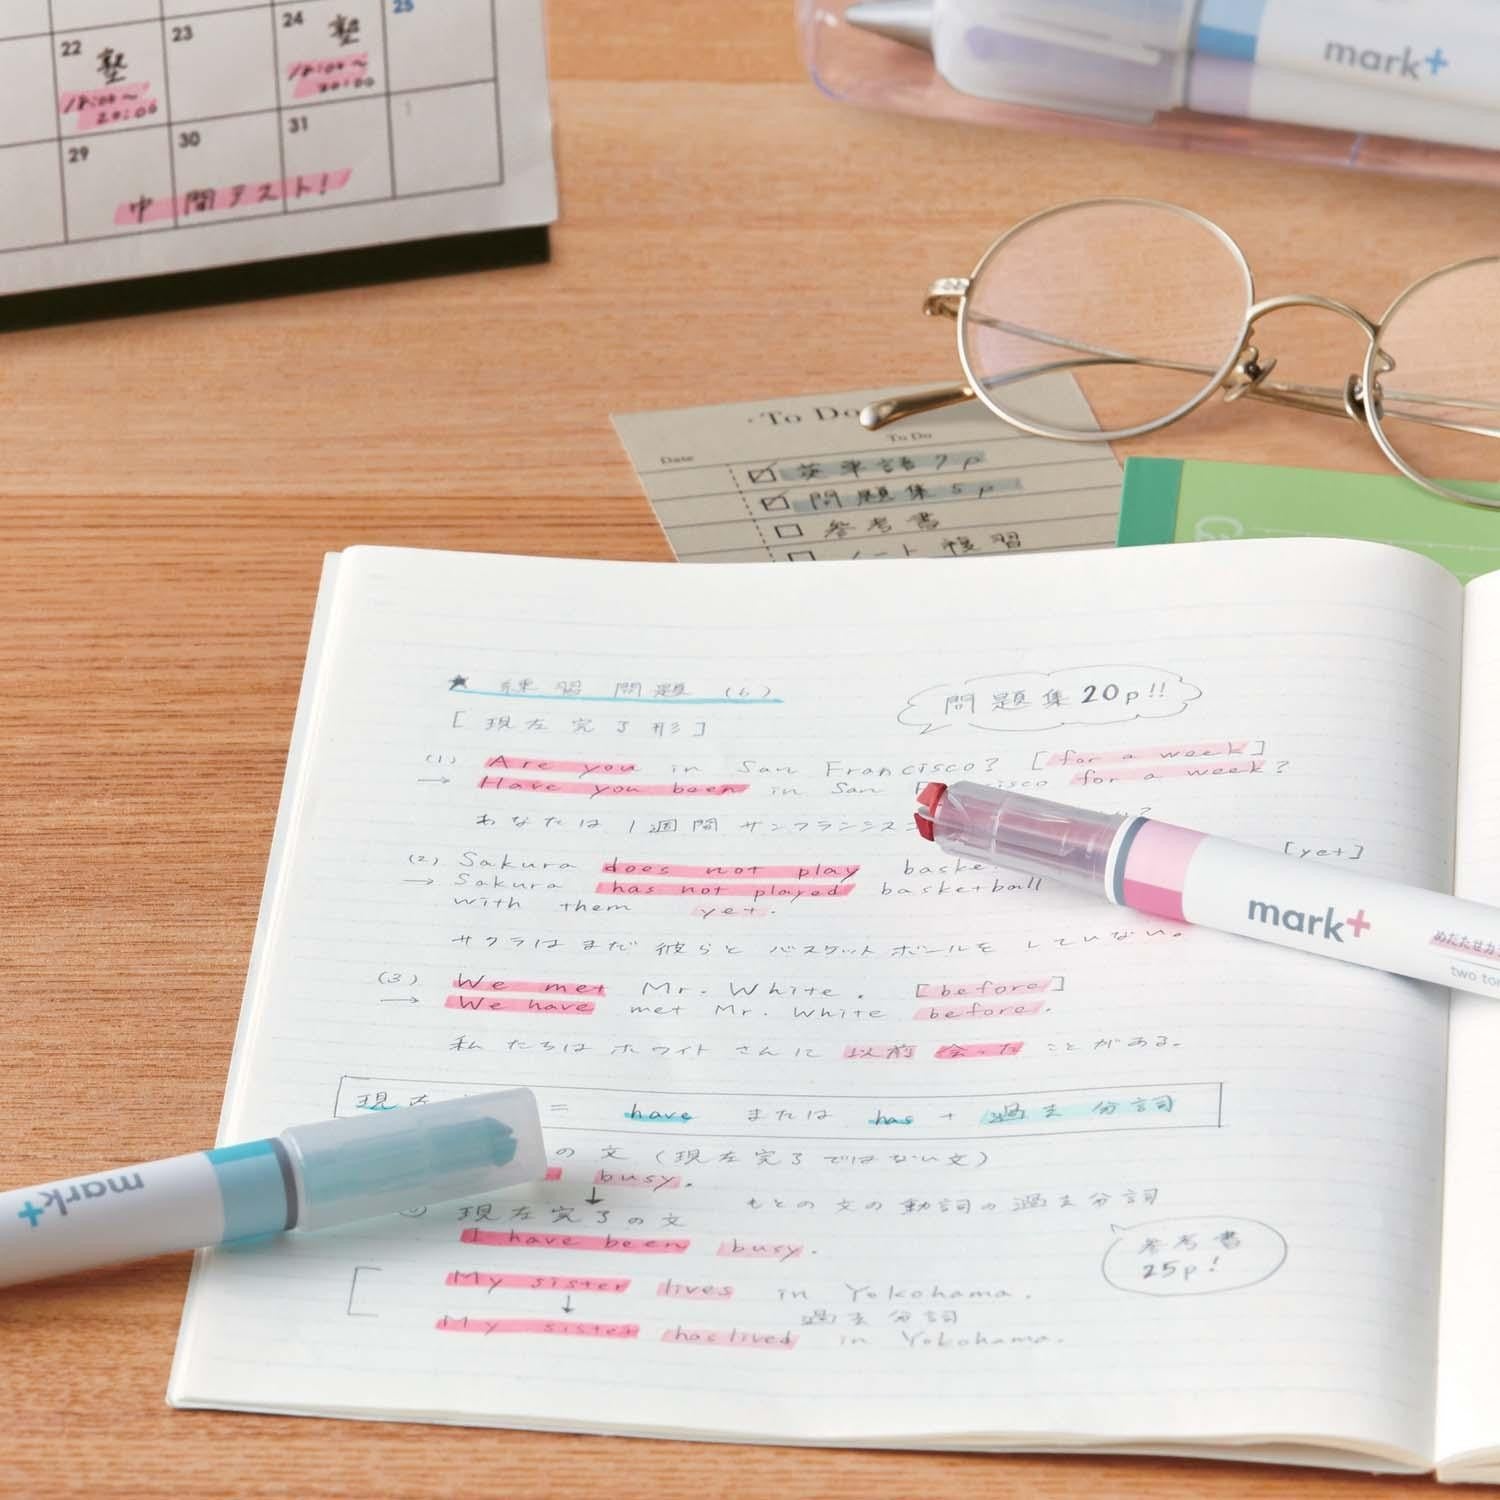 22 塾 23 24 塾 25
18:00〜 20:00 18:00〜 20:00
29 30 31 1
中間テスト!
mark+
To Do
To Do
Date
英単語 7p
問題集 5p
参考書
ノート 復習
★ 練習問題 (6)
問題集20p!!
[現在完了形]
(1) Are you in San Francisco? [for a week]
→ Have you been in San for a week?
あなたは1週間サンフランシスコ
(2) Sakura does not play [yet]
→ Sakura has not played basketball
with them yet.
サクラはまだ彼らとバスケットボールをしていない。
(3) We met Mr. White. [before]
→ We have met Mr. White before.
私たちはホワイトさんに以前会ったことがある。
現在 = have または has + 過去分詞
の文 (現在完了ではない文)
busy.
↓
現在完了の文 もとの文の動詞の過去分詞
I have been busy.
参考書
25p!
My sister lives in Yokohama.
↓ 過去分詞
My sister has lived in Yokohama.
mark+
two
mark+